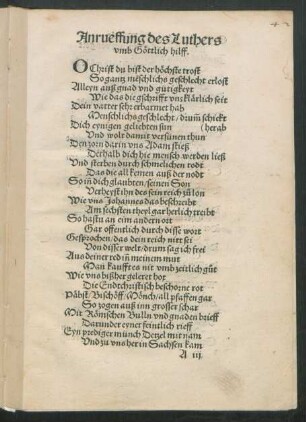 4
Anrueffung des Luthers
vmb Göttlich hilff.
O Christ du bist der höchste trost
So gantz mēschlichs geschlecht erlost
Alleyn auß gnad vnd gütigkeyt
Wie das die gschrifft vns klärlich seit
Dein vatter sehr erbarmet hab
Menschlichs geschlecht / drum̄ schickt
Dich eynigen geliebten sun (herab
Vnd wolt damit versünen thun
Den zorn darin vns Adam stieß
Derhalb dich hie mensch werden ließ
Vnd sterben durch schmelichen todt
Das die all kemen auß der not
So in dich glaubten / seinen Son
Verheyst ihn des sein reich zů lon
Wie vns Johannes das beschreibt
Am sechsten theyl gar herlich treibt
So hastu an eim andern ort
Gar offentlich durch disse wort
Gesprochen / das dein reich nitt sei
Von disser welt / drum̄ sag ich frei
Aus deiner red in meinem mut
Man kauff res nit vmb zeitlich gůt
Wie vns bißher geleret hot
Die Endtchristisch beschorne rot
Päbst / Bischöff / Mönch / all pfaffen gar
So zogen auß inn grosser schar
Mit Römschen Bulln vnd gnaden brieff
Darunder eyner feintlich rieff
Eyn prediger münch Detzel mit nam
Vnd zu vns her in Sachsen kam
A iij